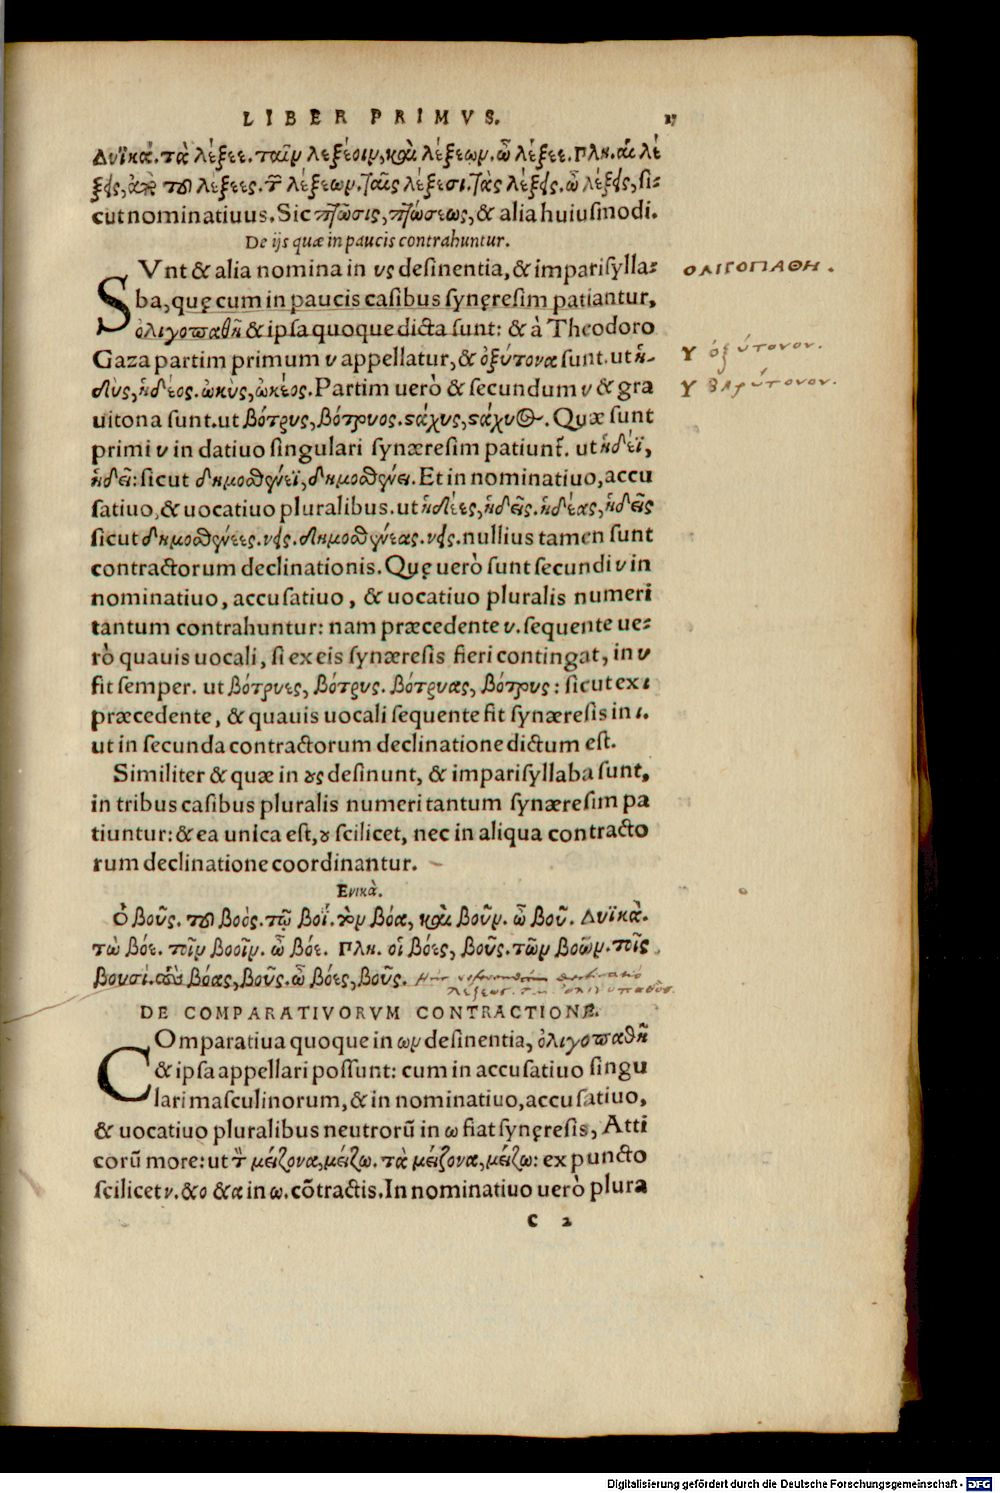 LIBER PRIMVS. 17
Δυϊκά. τὰ λέξεε. ταῖν λεξέοιν, καὶ λέξεῳν. ὦ λέξεε. Πλη. αἱ λέ
ξεις, ἀπὸ τοῦ λέξεες. τῶν λέξεων. ταῖς λέξεσι. τὰς λέξεις. ὦ λέξεις, si-
cut nominatiuus. Sic πτῶσις, πτώσεως, & alia huiusmodi.
De ijs quæ in paucis contrahuntur.
SVnt & alia nomina in υς desinentia, & imparisylla-
ba, quę cum in paucis casibus synęresim patiantur,
ὀλιγοπαθῆ & ipsa quoque dicta sunt: & à Theodoro
Gaza partim primum υ appellatur, & ὀξύτονα sunt. ut ἡ-
δὺς, ἡδέος. ὠκὺς, ὠκέος. Partim uerò & secundum υ & gra
uitona sunt. ut βότρυς, βότρυος. στάχυς, στάχυος. Quæ sunt
primi υ in datiuo singulari synæresim patiunt᷉. ut ἡδέϊ,
ἡδεῖ: sicut δημοσθένεϊ, δημοσθένει. Et in nominatiuo, accu
satiuo, & uocatiuo pluralibus. ut ἡδέες, ἡδεῖς. ἡδέας, ἡδεῖς
sicut δημοσθένεες. νεις. δημοσθένεας. νεις. nullius tamen sunt
contractorum declinationis. Quę uerò sunt secundi υ in
nominatiuo, accusatiuo, & uocatiuo pluralis numeri
tantum contrahuntur: nam præcedente υ. sequente ue-
rò quauis uocali, si ex eis synæresis fieri contingat, in υ
fit semper. ut βότρυες, βότρυς. βότρυας, βότρυς: sicut ex ι
præcedente, & quauis uocali sequente fit synæresis in ι.
ut in secunda contractorum declinatione dictum est.
Similiter & quæ in ȣς desinunt, & imparisyllaba sunt,
in tribus casibus pluralis numeri tantum synæresim pa
tiuntur: & ea unica est, ȣ scilicet, nec in aliqua contracto
rum declinatione coordinantur.
Ενικὰ.
Ὁ βοῦς. τοῦ βοὸς. τῷ βοῒ. τὸν βόα, καὶ βοῦν. ὦ βοῦ. Δυϊκὰ.
τὼ βόε. τοῖν βοοῖν. ὦ βόε. Πλη. οἱ βόες, βοῦς. τῶν βοῶν. τοῖς
βουσὶ. τοὺς βόας, βοῦς. ὦ βόες, βοῦς.
DE COMPARATIVORVM CONTRACTIONE.
COmparatiua quoque in ων desinentia, ὀλιγοπαθῆ
& ipsa appellari possunt: cum in accusatiuo singu
lari masculinorum, & in nominatiuo, accusatiuo,
& uocatiuo pluralibus neutrorũ in ω fiat synęresis, Atti
corũ more: ut τὸν μείζονα, μείζω. τὰ μείζονα, μείζω: ex puncto
scilicet ν. & ο & α in ω. cõtractis. In nominatiuo uerò plura
C 2
ΟΛΙΓΟΠΑΘΗ.
Υ ὀξύτονον.
Υ βαρύτονον.
Digitalisierung gefördert durch die Deutsche Forschungsgemeinschaft - DFG